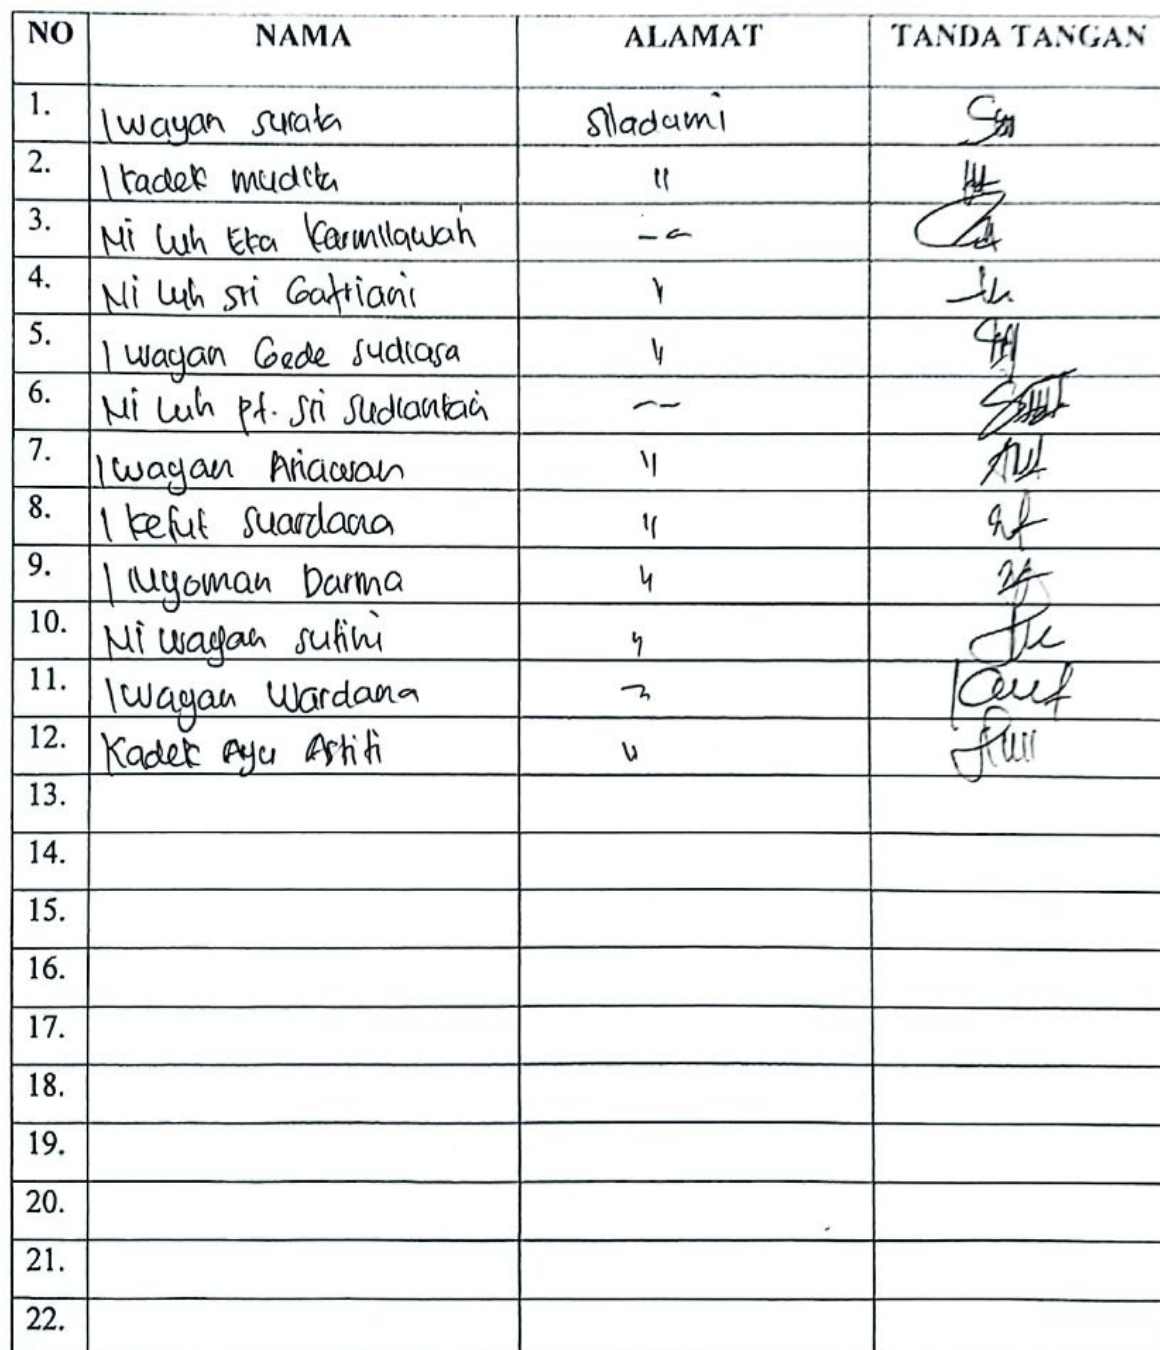 NO NAMA ALAMAT TANDA TANGAN
1. I wayan surata Siladumi
2. I kadek mudita "
3. Ni Luh Eka Karmilawati
4. Ni Luh sri Gatriani "
5. I wayan Gede sudiasa "
6. Ni Luh pt. sri sudiantari
7. I wayan Ariawan "
8. I ketut suardana "
9. I Nyoman Darma "
10. Ni wayan sutini "
11. I wayan Wardana
12. Kadek Ayu Astiti "
13.
14.
15.
16.
17.
18.
19.
20.
21.
22.